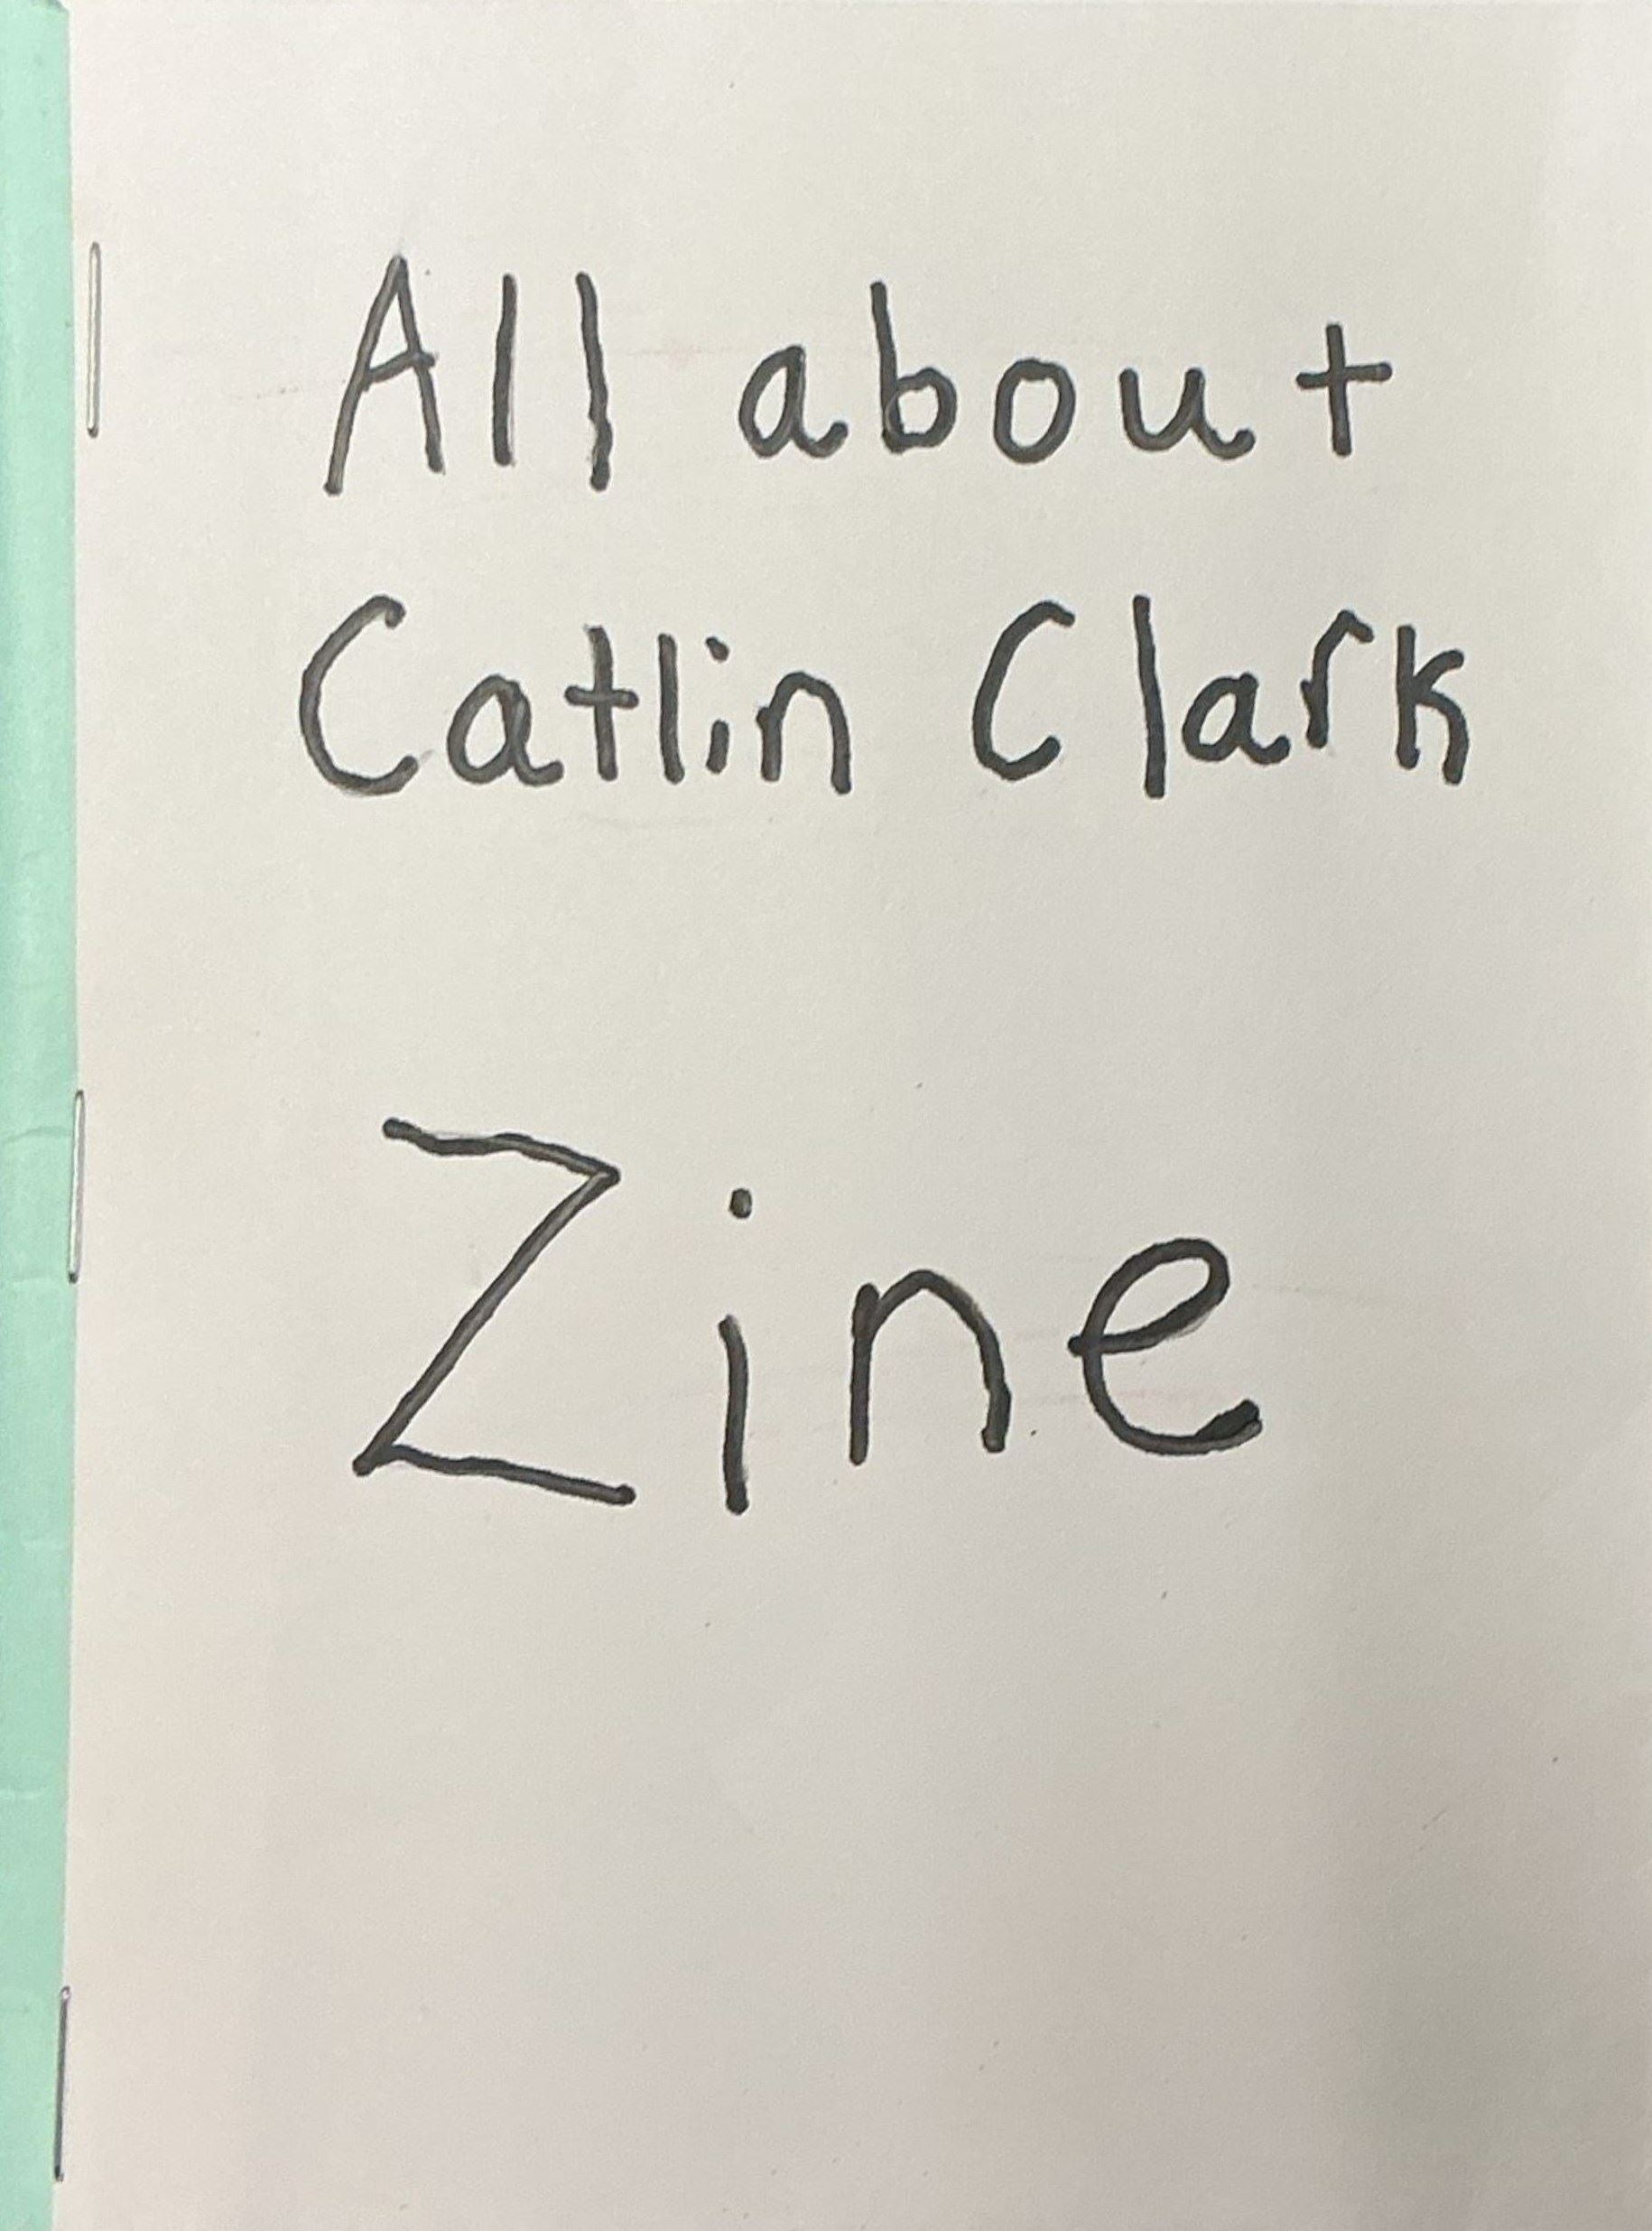 All about
Catlin Clark
Zine